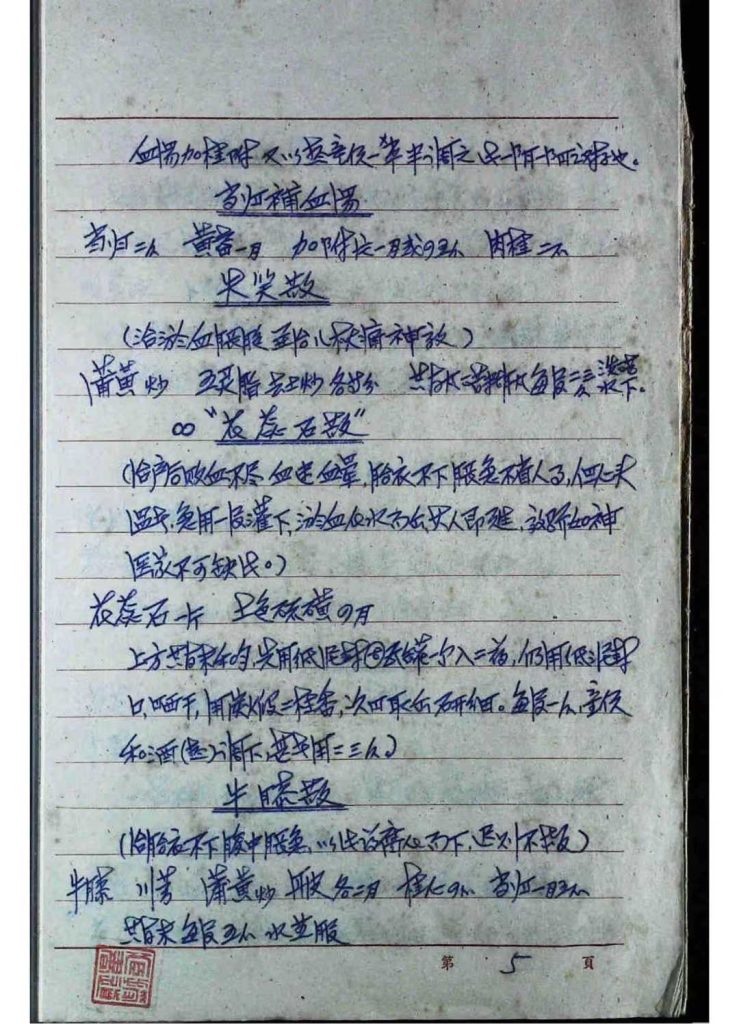 血焬加桂附 又以熱童便一半調之
当归補血湯
当归二钱 黄芪一两 加附片一两或四五钱 肉桂二钱
失笑散
(治淤血脹胀 至台儿枕痛神效)
蒲黄炒 五灵脂去土炒 各等分 共为末 每服二三钱 水下。
“花蕊石散”
(治产后败血不尽 血迷血晕，胎衣不下 脹急不省人事，但心头
温者，急用一服灌下，淤血化水而出 其人即甦，效驗如神
医家不可缺此。)
花蕊石一斤 上色硫磺四两
上方共为末和匀，先用纸泥封 一个入二药，仍用纸泥封
口，晒干，用炭火煅二柱香，次日取出研细。每服一钱，童便
和酒(热)调下，甚者用二三钱)
牛膝散
(治胎衣不下 腹中脹急，以此药 而下，迟则不救)
牛膝 川芎 蒲黄炒 丹皮各二两 桂心四钱 当归一两五钱
共为末 每服五钱 水煎服
第 5 頁